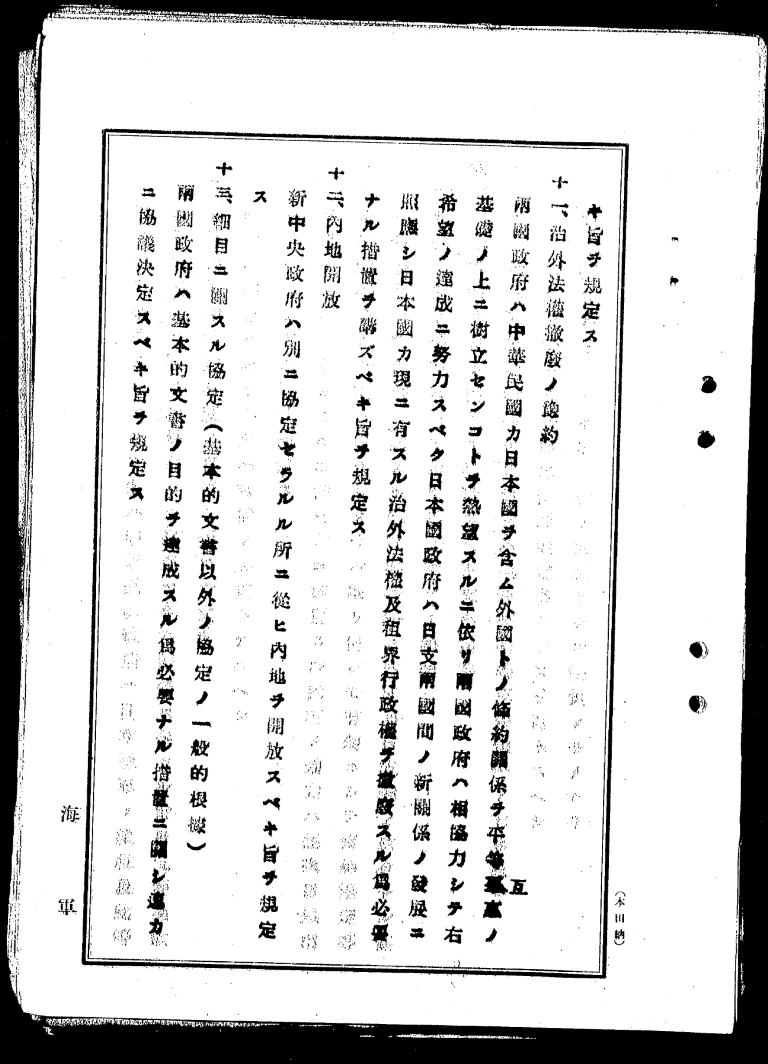 キ旨ヲ規定ス
十一、治外法權撤廢ノ豫約
兩國政府ハ中華民國カ日本國ヲ含ム外國トノ條約關係ヲ平等互惠ノ
基礎ノ上ニ樹立センコトヲ熱望スルニ依リ兩國政府ハ相協力シテ右
希望ノ達成ニ努力スベク日本國政府ハ日支兩國間ノ新關係ノ發展ニ
照應シ日本國カ現ニ有スル治外法權及租界行政權ヲ撤廢スル爲必要
ナル措置ヲ講ズベキ旨ヲ規定ス
十二、內地開放
新中央政府ハ別ニ協定セラルル所ニ從ヒ內地ヲ開放スベキ旨ヲ規定
ス
十三、細目ニ關スル協定(基本的文書以外ノ協定ノ一般的根據)
兩國政府ハ基本的文書ノ目的ヲ達成スル爲必要ナル措置ニ關シ遲カ
ニ協議決定スベキ旨ヲ規定ス
海軍
(本田納)